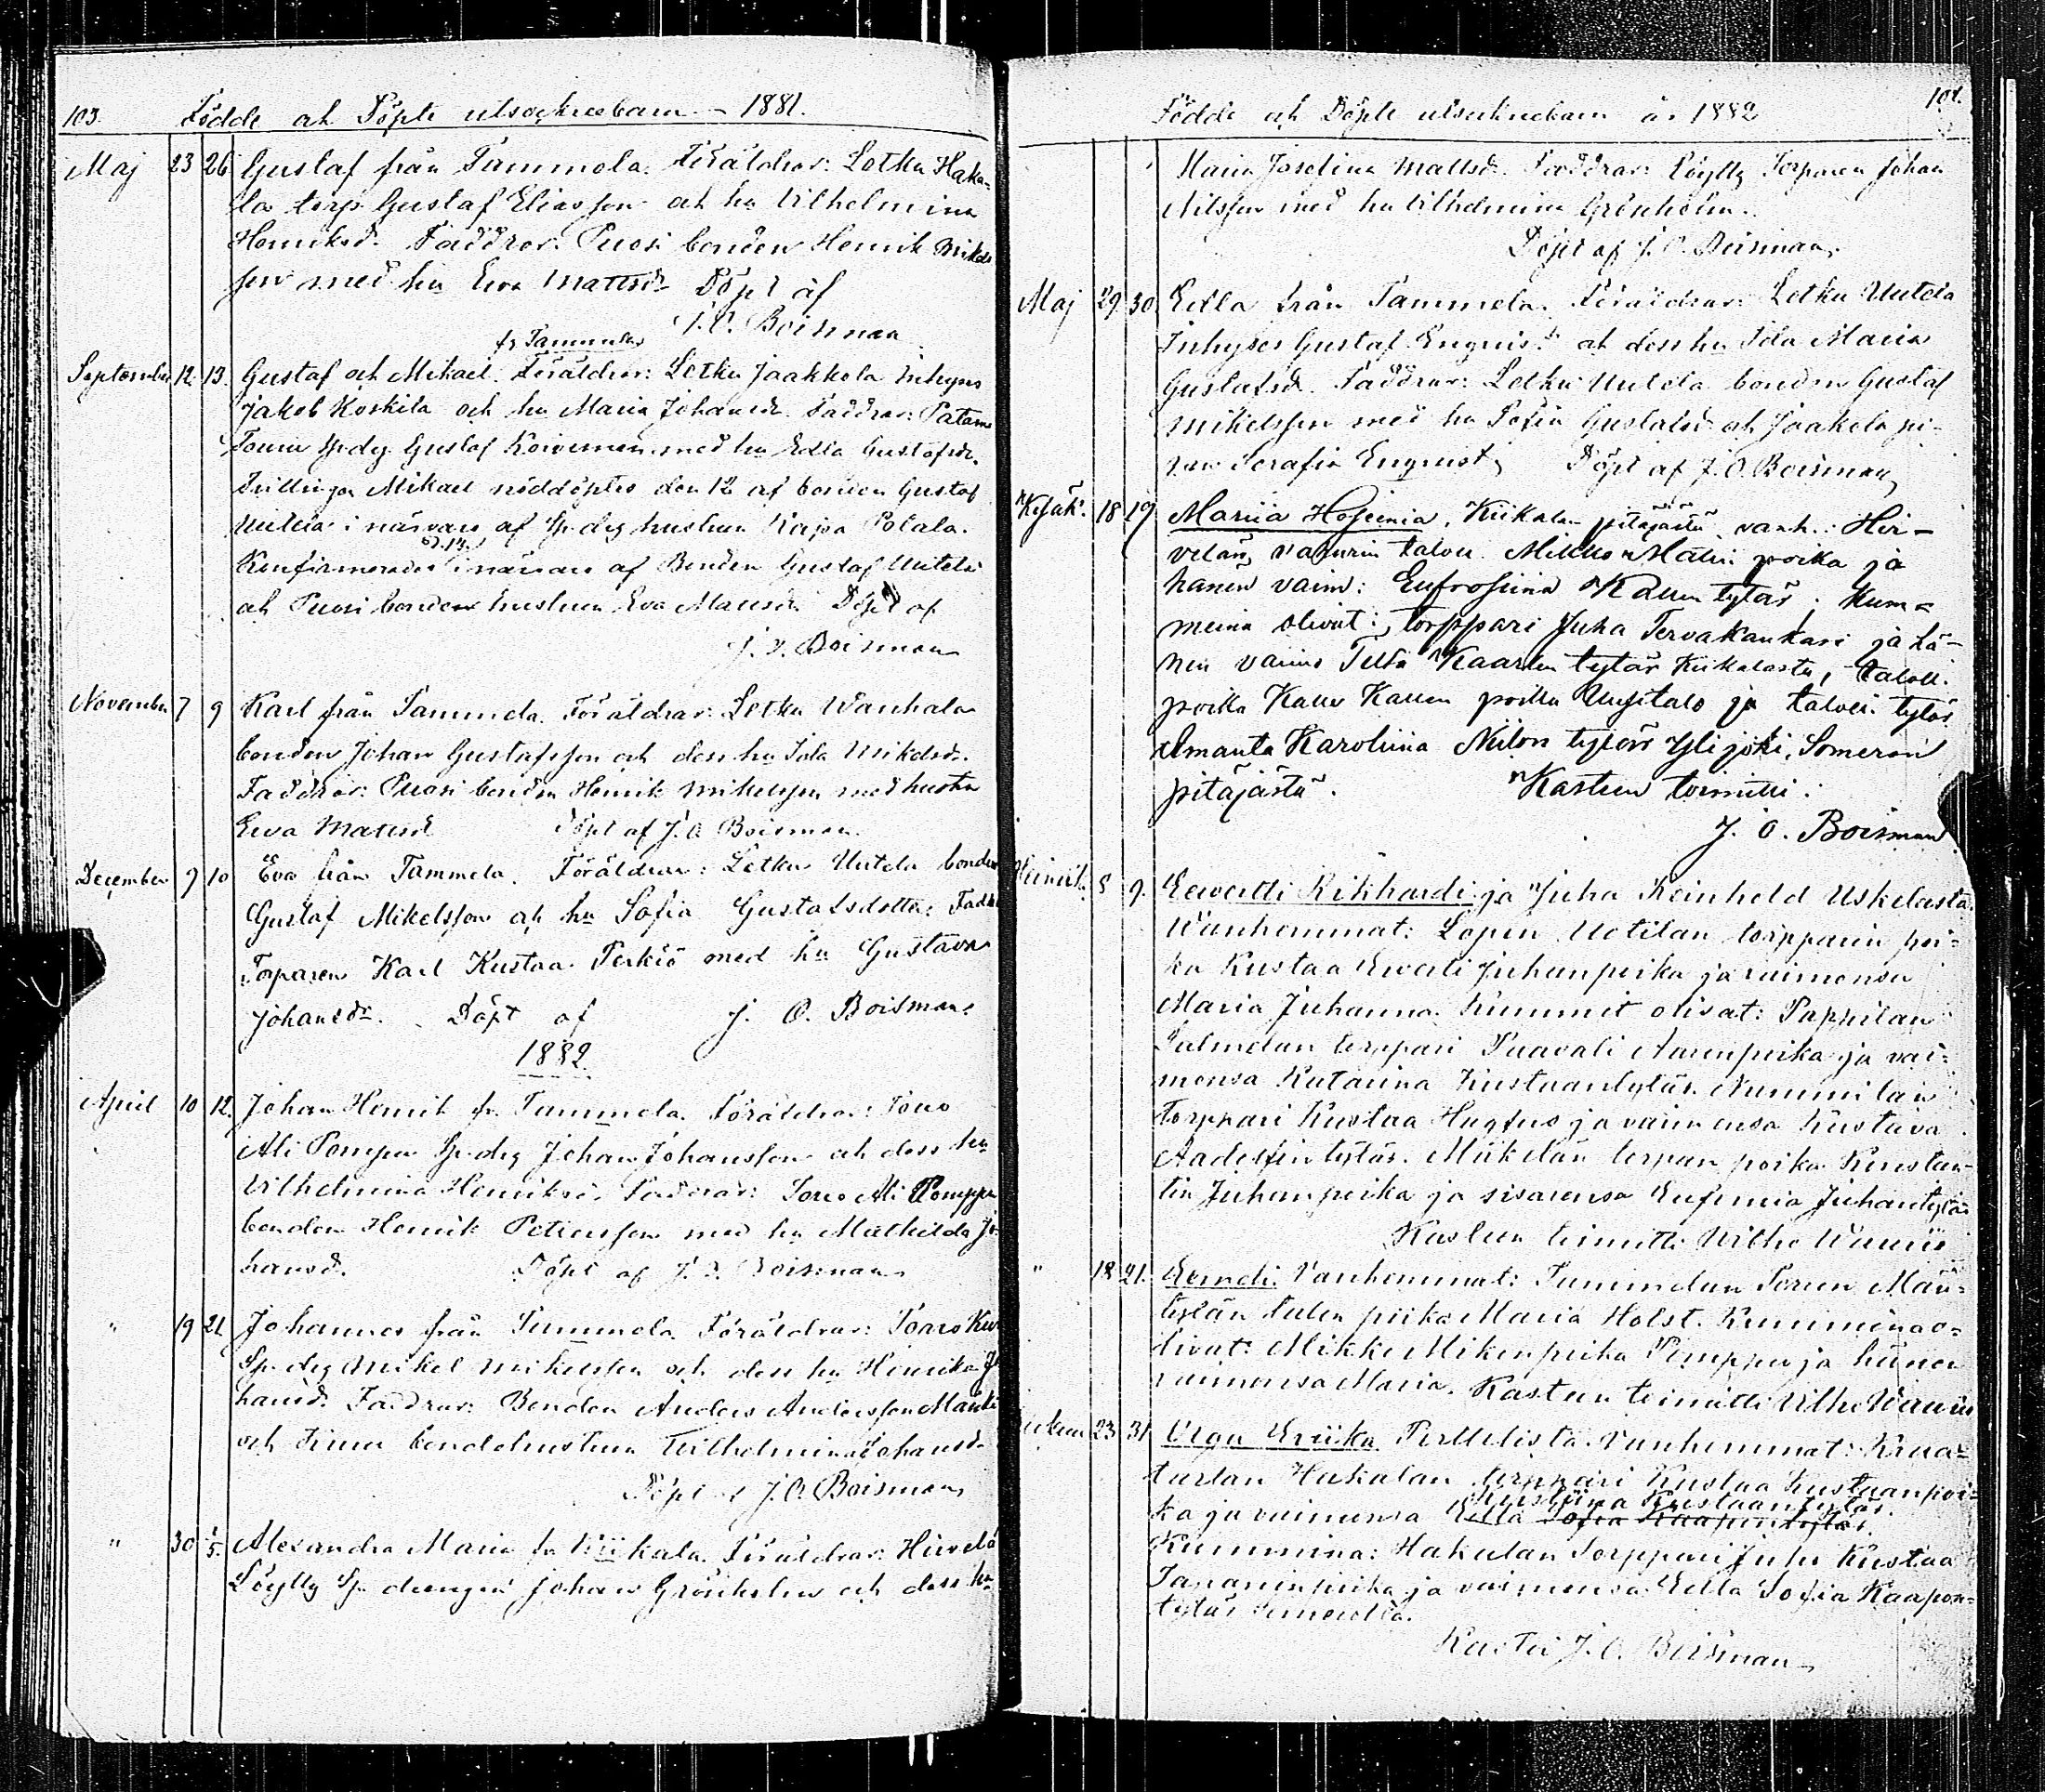 103. Födde och Döpte utsocknebarn - 1881.
Maj 23 26 Gustaf från Tammela. Föräldrar: Letku Haka-
la torp. Gustaf Eliasson och hu Vilhelmina
Henriksd. Faddrar: Puosi bonden Henrik Mikels
son med hu Eva Mattsd. Döpt af
J. O. Boisman
fr Tammela
September 12. 13. Gustaf och Mikael. Föräldrar: Letku Jaakkola Inhyses
Jakob Koskila och hu Maria Johansd. Faddrar: Patamo
Gustaf Koivunen med hu Edla Gustafsd.
Tvillingen Mikael nöddöptes den 12 af bonden Gustaf
Uutela i närvaro af hustrun Kajsa Polala.
d. 14.
Konfirmerades i närvaro af Bonden Gustaf Uutela
och Puosi bonden hustrun Eva Mattsd. Döpt af
J. O. Boisman
November 7 9 Karl från Tammela. Föräldrar: Letku Wanhala
bonden Johan Gustafsson och dess hu Ida Mikelsd.
Faddrar: Puosi bonden Henrik Mikelsson med hustru
Eva Mattsd Döpt af J. O. Boisman.
December 9 10 Eva från Tammela. Föräldrar: Letku Uutela bonden
Gustaf Mikelsson och hu Sofia Gustafsdotter. Fadd
Torparen Karl Kustaa Perkiö med hu Gustava
Johansdr. Döpt af J. O. Boisman
1882.
April 10 12. Johan Henrik fr. Tammela. Föräldrar: Torro
Ali Pomppu Sp. drg Johan Johansson och dess hu
Vilhelmina Henriksd. Faddrar: Torro Ali Pomppu
bonden Henrik Petersson med hu Mathilda Jo-
hansd. Döpt af J. O. Boisman
" 19 21 Johannes från Tammela. Föräldrar:
Sp. drg Mikel Mikelsson och dess hu Henrika Jo
hansd. Faddrar: Bonden Anders Andersson
och bondehustrun Wilhelmina Johansd.
Döpt af J. O. Boisman
" 30 1/5. Alexandra Maria fr Kiikala. Föräldrar: Hirvelä
Löylly Sp. drengen Johan Grönholm och dess hu
104.
Födde och Döpte utsocknebarn år 1882
Maria Josefina Mattsd. Faddrar: Löylly Torparen Johan
Nilsson med hu Vilhelmina Grönholm.
Döpt af J. O. Boisman
Maj 29. 30. Edla från Tammela. Föräldrar: Letku Uutela
Inhyses Gustaf Enqvist och dess hu Ida Maria
Gustafsd. Faddrar: Letku Uutela bonden Gustaf
Mikelsson med hu Sofia Gustafsd. och Jaakola pi-
gan Serafia Enqvist. Döpt af J. O. Boisman
Kesäk. 18 19 Mariia Hosiinia, Kiikalan pitäjästä vanh.: Hir-
velän talon Mikko Matin poika ja
hänen vaim: Eufrosiina Kallen tytär; Kum-
meina olivat: torppari Juha Tervakankari ja hä-
nen vaimo Kaarlen tytär Kiikalasta, talon
poika Kalle Kallen poika Uusitalo ja talon tytär
Amanta Karoliina Niilon tytär Ylijoki, Someron
pitäjästä. Kasteen toimitti:
J. O. Boisman
Heinäk. 8 9. Eewertti Rikhardi ja Juha Reinhold Uskelasta.
Wanhemmat: Lopen Uotilan torpparin poi-
ka Kustaa Ewerti Juhanpoika ja vaimonsa
Maria Juhanna. Kummit olivat: Pappilan
Salmelan torppari Paavali Aaronpoika ja vai-
monsa Katariina Kustaantytär. Nummilan
torppari Kustaa ja vaimonsa Kustava
Aadolfintytär. Mikkelän torpan poika Konstan-
tin Juhanpoika ja sisarensa Eufemia Juhantytär
Kasteen toimitti Wilho
" 18 21. Eemeli. Vanhemmat: Tammelan Torron Män-
tylän talon piika Maria Holst. Kummina o-
livat: Mikki Mikonpoika Pomppu ja hänen
vaimonsa Maria. Kasteen toimitti Wilho
23 31 Olga Eriika Perttelistä. Vanhemmat:
Hakalan torppari Kustaa Kustaanpoi-
Kustaantytär.
ka ja vaimonsa Edla Sofia Kaapontytär.
Kummina: Hakalan Torppari Juho Kustaa
Tananinpoika ja vaimonsa Edla Sofia Kaapon-
tytär Somerolla.
Kastoi J. O. Boisman